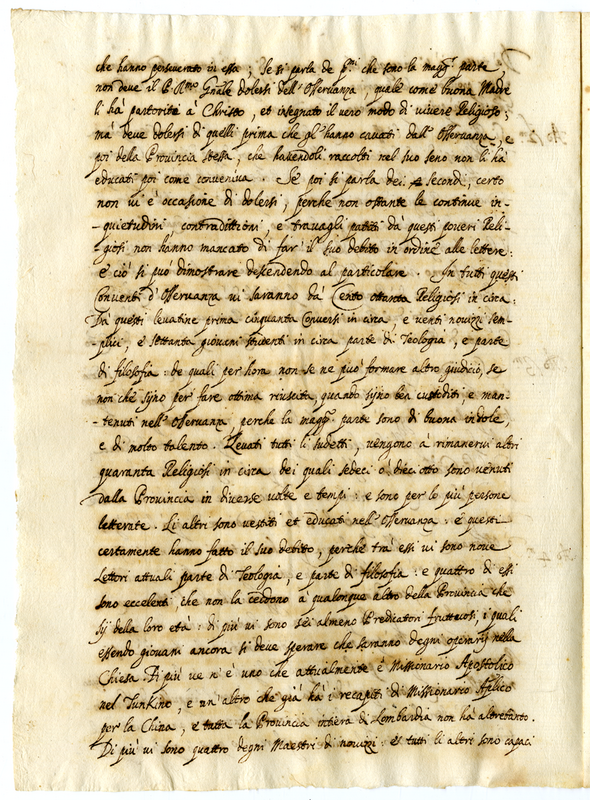 che hanno perseverato in essa; Se si parla de p.mi che sono la magg.r parte,
non deve il P. R.mo Gnāle dolersi dell'Osservanza, quale come buona Madre
li hà partoriti à Christo, et insegnato il vero modo di vivere Religioso;
mà deve dolersi di quelli prima che gl'hanno cavati dell'Osservanza, e
poi della Provincia stessa, che havendoli raccolti nel suo seno non li hà
educati poi come conveniva. Se poi si parla dei secondi, certo
non vi è occasione di dolersi, perche non ostante le continue in-
-quietudini, contradittioni, e travagli patiti dà questi poveri Reli-
-giosi non hanno mancato di far' il suo debito in ordine alle lettere:
e ciò si può dimostrare descendendo al particolare. In tutti questi
Conventi d'Osservanza vi saranno dà Cento ottanta Religiosi in circa:
Dà questi levatine prima cinquanta Conversi in circa, e venti novizzi sem-
-plici, e settanta giovani studenti in circa parte di Teologia, e parte
di filosofia: de quali per hora non se ne può formare altro giudicio, se
non che sijno per fare ottima riuscita, quando sijno ben custoditi, e man-
-tenuti nell'Osservanza, perche la magg.r parte sono di buona indole,
e di molto talento. Levati tutti li sudetti, vengono à rimanervi altri
quaranta Religiosi in circa dei quali sedeci ò dieciotto sono venuti
dalla Provincia in diverse volte e tempi: e sono per lo più persone
letterate. Li altri sono vestiti et educati nell'Osservanza: e questi
certamente hanno fatto il suo debito, perche trà essi vi sono nove
Lettori attuali parte di Teologia, e parte di filosofia: e quattro di essi
sono eccelenti, che non la cedono à qualonque altro della Provincia che
sij della loro età: di più vi sono sei almeno Predicatori fruttuosi, i quali
essendo giovani ancora si deve sperare che saranno degni operarij nella
Chiesa. Di più ve n'è uno che attualmente è Missionario Apostolico
nel Tunkino, e un'altro che già hà i recapiti di Missionario Aplico
per la China, e tutta la Provincia intiera di Lombardia non hà altretanto.
Di più vi sono quattro degni Maestri di novizzi: et tutti li altri sono capaci